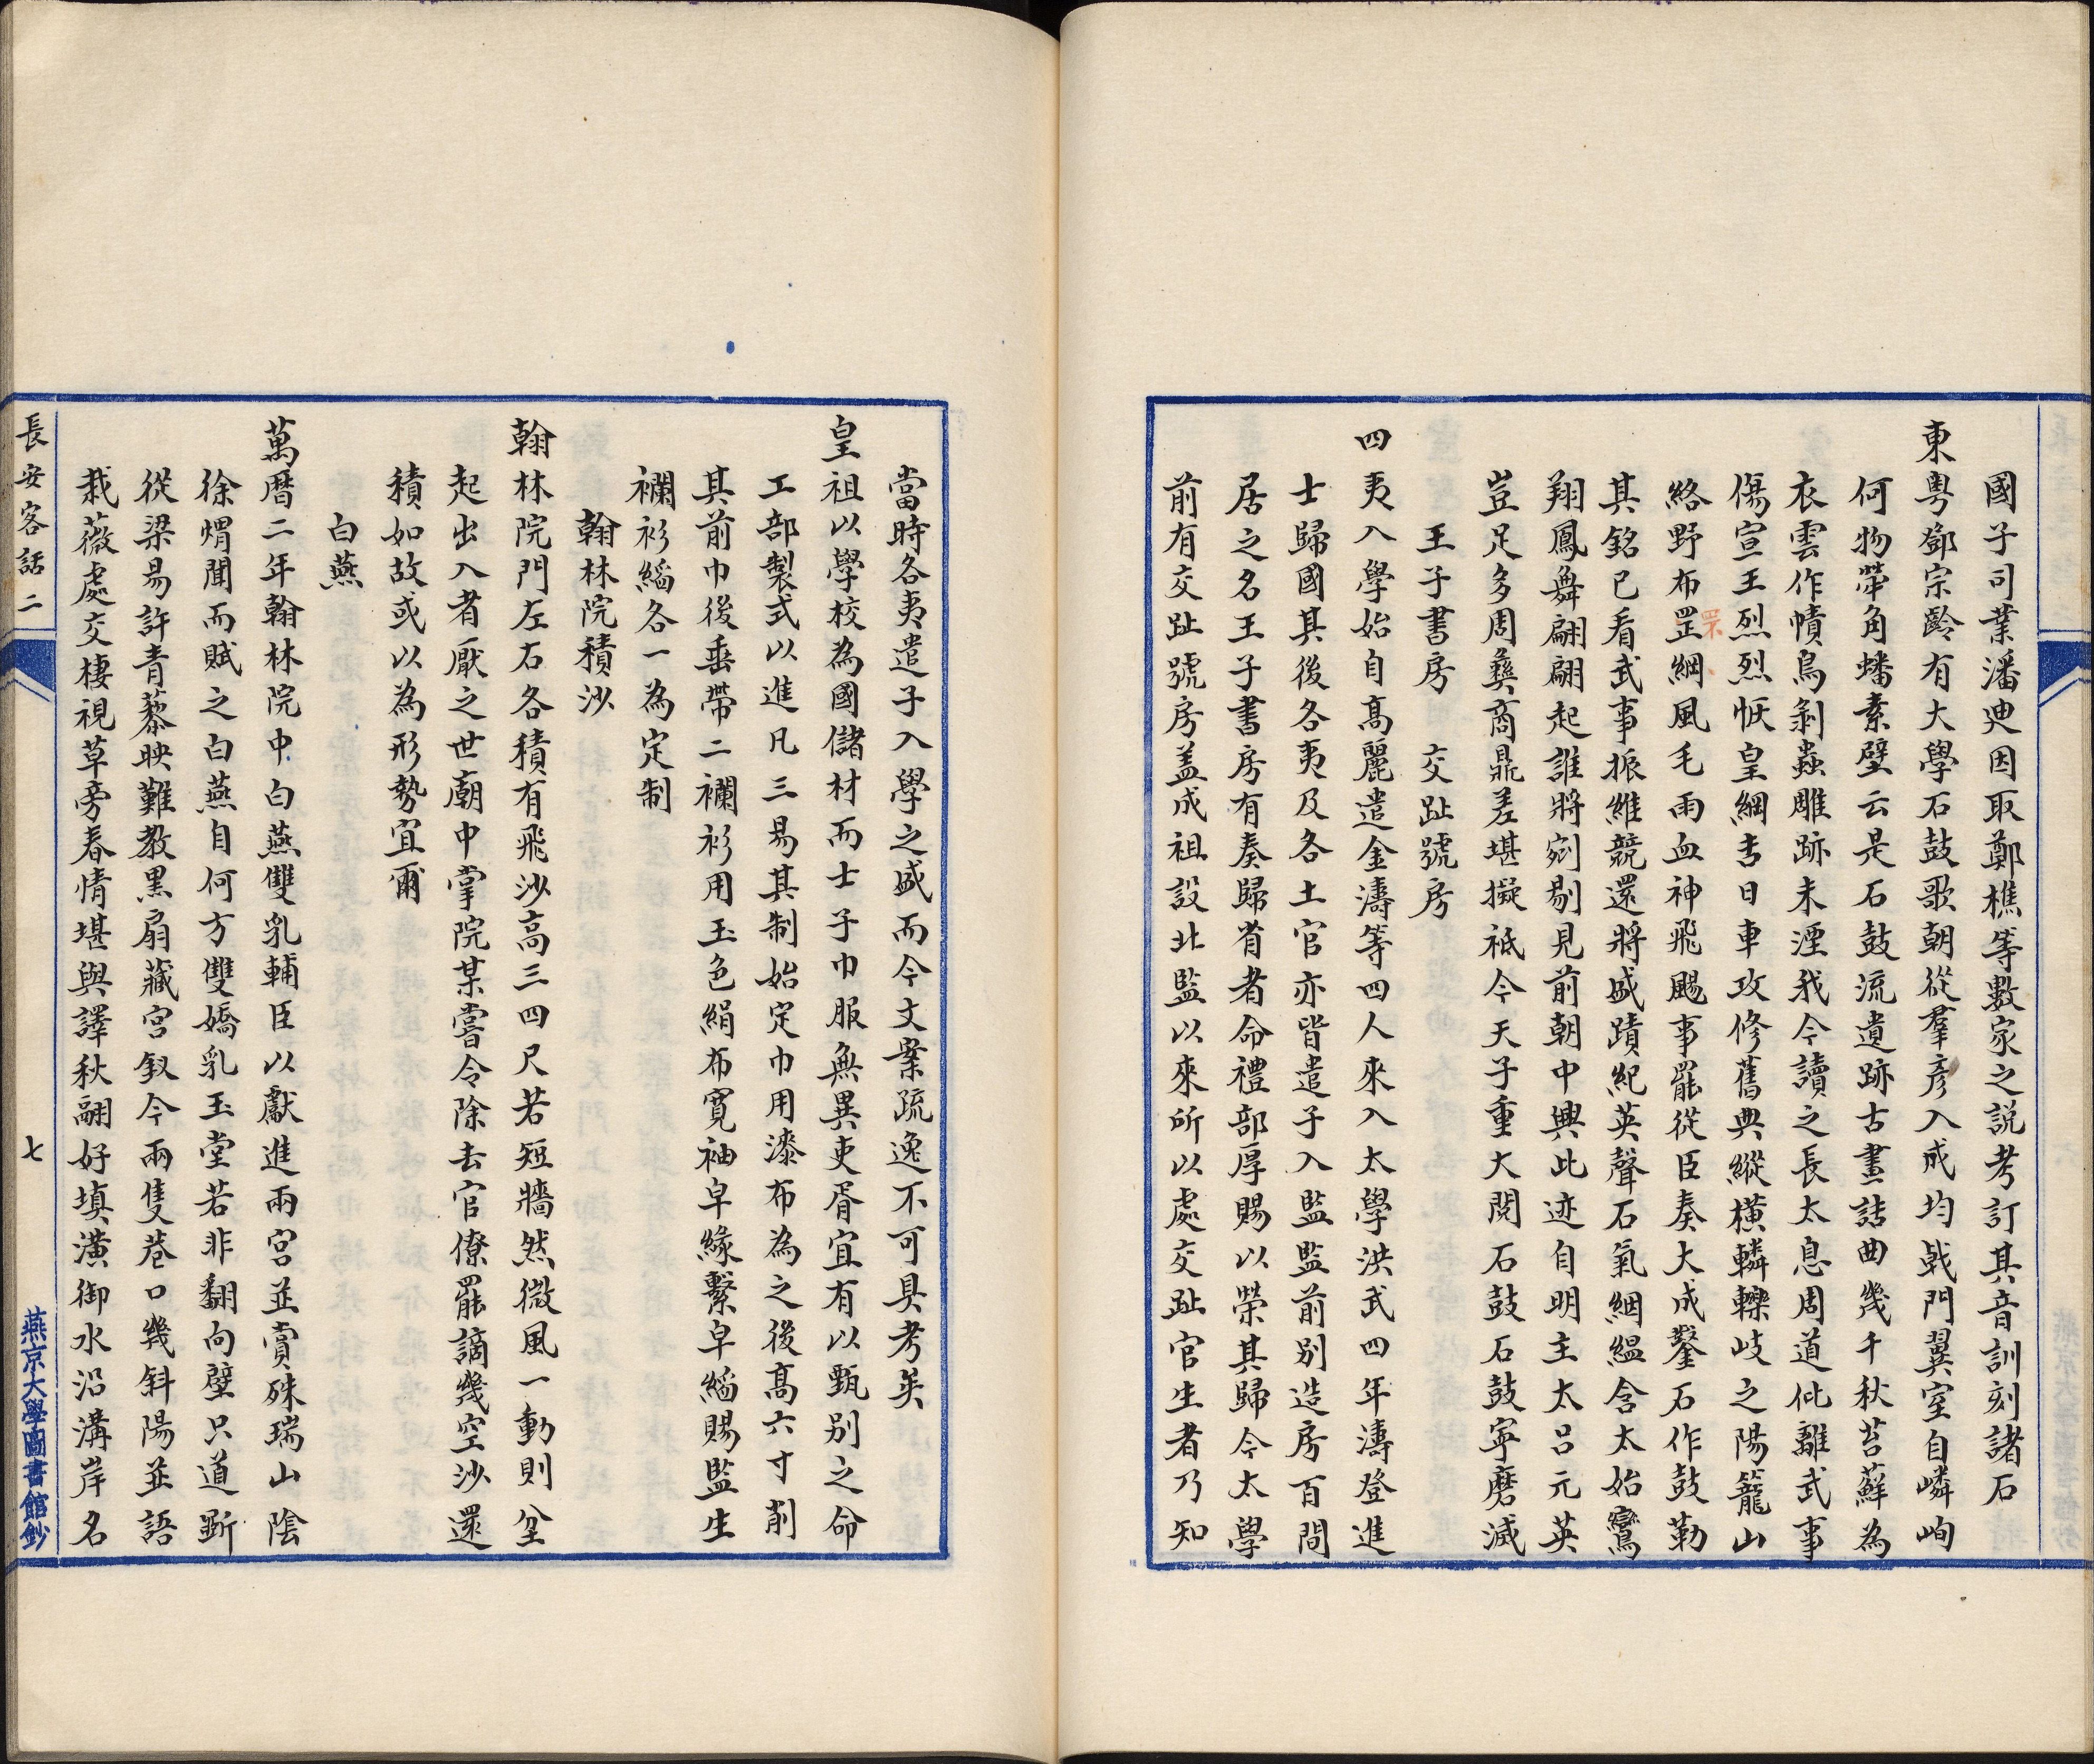 國子司業潘迪因取鄭樵等數家之説考訂其音訓刻諸石
東粵鄧宗齡有大學石鼓歌朝從羣彦入成均戟門翼室自嶙峋
何物犖角蟠素壁云是石鼓流遺跡古畫詰曲幾千秋苔蘚為
衣雲作幘鳥剝蟲雕跡未湮我今讀之長太息周道仳離武事
傷宣王烈烈恢皇綱吉日車攻修舊典縱橫轔轢岐之陽籠山
絡野布罡綱風毛雨血神飛颺事罷從臣奏大成鑿石作鼓勒
罘
其銘已看武事振維競還將盛蹟紀英聲石氣絪縕含太始鸞
翔鳳舞翩翩起誰將剜剔見前朝中興此迹自明主太吕元英
豈足多周彝商鼎差堪擬祇今天子重大閱石鼓石鼓寧磨滅
王子書房 交趾號房
四夷入學始自高麗遣金濤等四人來入太學洪武四年濤登進
士歸國其後各夷及各土官亦皆遣子入監監前别造房百間
居之名王子書房有奏歸省者命禮部厚賜以榮其歸今太學
前有交趾號房盖成祖設北監以來所以處交趾官生者乃知
當時各夷遣子入學之盛而今文案疏逸不可具考矣
皇祖以學校為國儲材而士子巾服無異吏胥宜有以甄别之命
工部製式以進凡三易其制始定巾用漆布為之後高六寸削
其前巾後垂帶二襴衫用玉色絹布寬袖皁緣繫皁縧賜監生
襴衫縧各一為定制
翰林院積沙
翰林院門左右各積有飛沙高三四尺若短牆然微風一動則坌
起出入者厭之世廟中掌院某嘗令除去官僚罷謫幾空沙還
積如故或以為形勢宜爾
白燕
萬曆二年翰林院中白燕雙乳輔臣以獻進兩宮並賞殊瑞山陰
徐熷聞而賦之白燕自何方雙嬌乳玉堂若非翻向壁只道斷
從梁易許青藜映難教黑扇藏宮釵今兩隻巷口幾斜陽並語
栽薇處交棲視草旁春情堪與譯秋翮好填潢御水沿溝岸名
長安客話二
七
燕京大學圖書館鈔